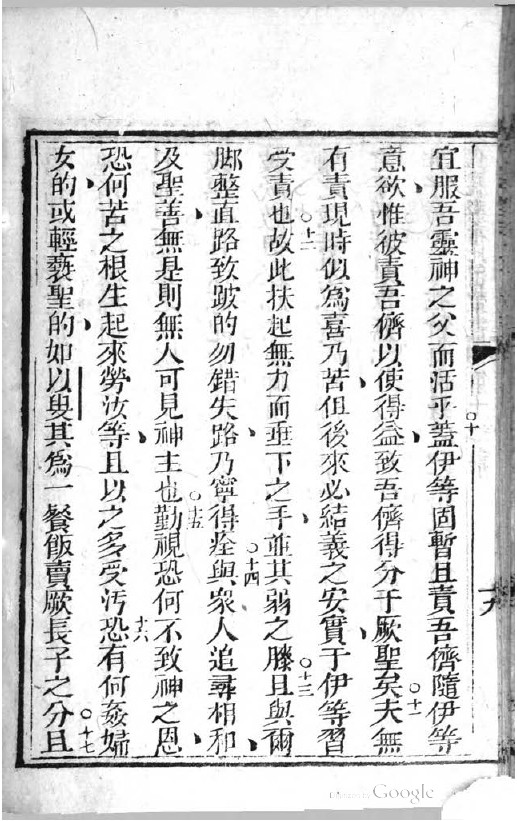 宜服吾靈神之父而活乎○十蓋伊等固暫且責吾儕隨伊等
意欲惟彼責吾儕以使得益致吾儕得分于厥聖矣○十一夫無
有責現時似為喜乃苦但後來必結義之安實于伊等習
受責也○十二故此扶起無力而垂下之手並其弱之膝○十三且與爾
脚整直路致跛的勿錯失路乃寧得痊○十四與眾人追尋相和
及聖善無是則無人可見神主也○十五勤視恐何不致神之恩
恐何苦之根生起來勞汝等且以之多受汚十六恐有何姦婦
女的或輕褻聖的如以叟其為一餐飯賣厥長子之分○十七且
十九
Digitized by Google